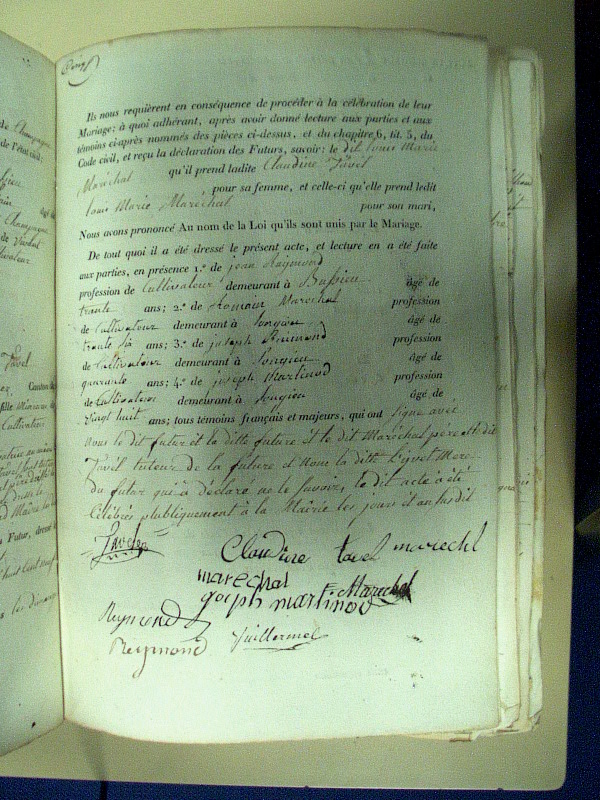 Ils nous requièrent en conséquence de procéder à la célébration de leur
Mariage; à quoi adhérant, après avoir donné lecture aux parties et aux
témoins ci-après nommés des pièces ci-dessus, et du chapitre 6, tit. 5, du
Code civil, et reçu la déclaration des Futurs, savoir: le dit Louis Marie
Maréchal qu'il prend ladite Claudine Tavel
pour sa femme, et celle-ci qu'elle prend ledit
Louis Marie Maréchal pour son mari,
Nous avons prononcé Au nom de la Loi qu'ils sont unis par le Mariage.
De tout quoi il a été dressé le présent acte, et lecture en a été faite
aux parties, en présence 1.º de jean Raymond
profession de Cultivateur demeurant à âgé de
trante ans; 2.º de Romain Marechal profession
de Cultivateur demeurant à Songieu âgé de
trante six ans; 3.º de joseph Reimond profession
de Cultivateur demeurant à Songieu âgé de
quarante ans; 4.º de joseph Martinod profession
de Cultivateur demeurant à Songieu âgé de
vingt huit ans; tous témoins français et majeurs, qui ont signé avec
nous le dit futur et la ditte future et le dit Maréchal père et le dit
Tavel tuteur de la future et non la ditte Mere
du futur qui à déclaré ne le savoir, le dit acte à été
Célébrés publiquement à la Mairie les jours et an susdit
Claudine tavel marechl
marechal R Marechal
goseph martinod
Reymond
Reymond Guillermet